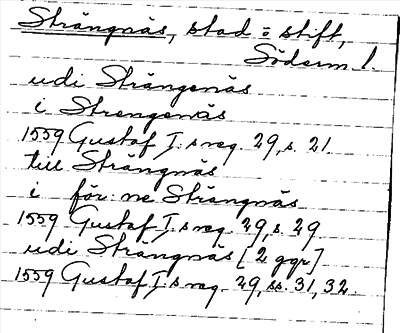 Strängnäs, stad o stift,
Söderm l.
udi Strängenäs
i Strengenäs
1559 Gustaf I:s reg. 29, s. 21
till Strängnäs
i för:ne Strängnäs
1559 Gustaf I:s reg. 29, s. 29
udi Strängnäs [2 ggr]
1559 Gustaf I:s reg. 29, ss. 31, 32.